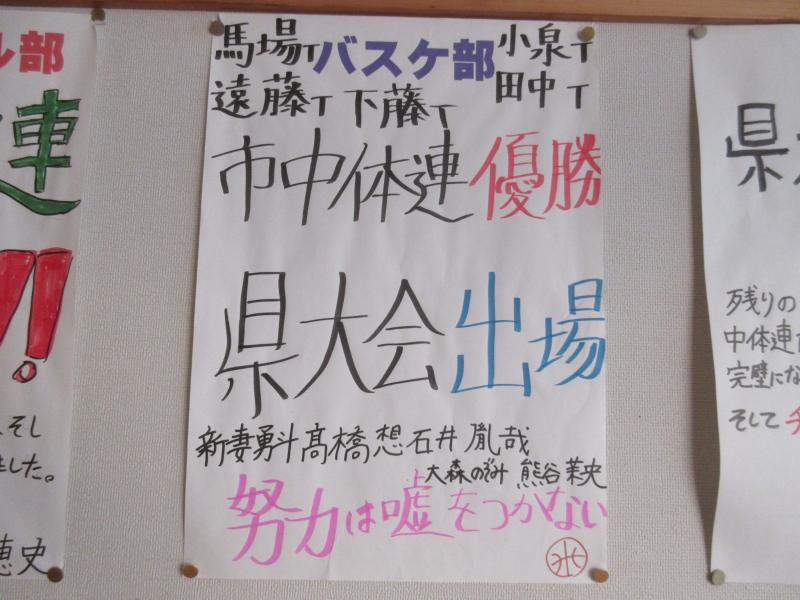 馬場T バスケ部 小泉T
遠藤T 下藤T 田中T
市中体連優勝
県大会出場
新妻勇斗 髙橋想 石井胤哉
大森のぞみ 熊谷茉央
努力は嘘をつかない
ル部
連
!!
そし
ました。
穂史
県
残りの
中体連
完璧にな
そして